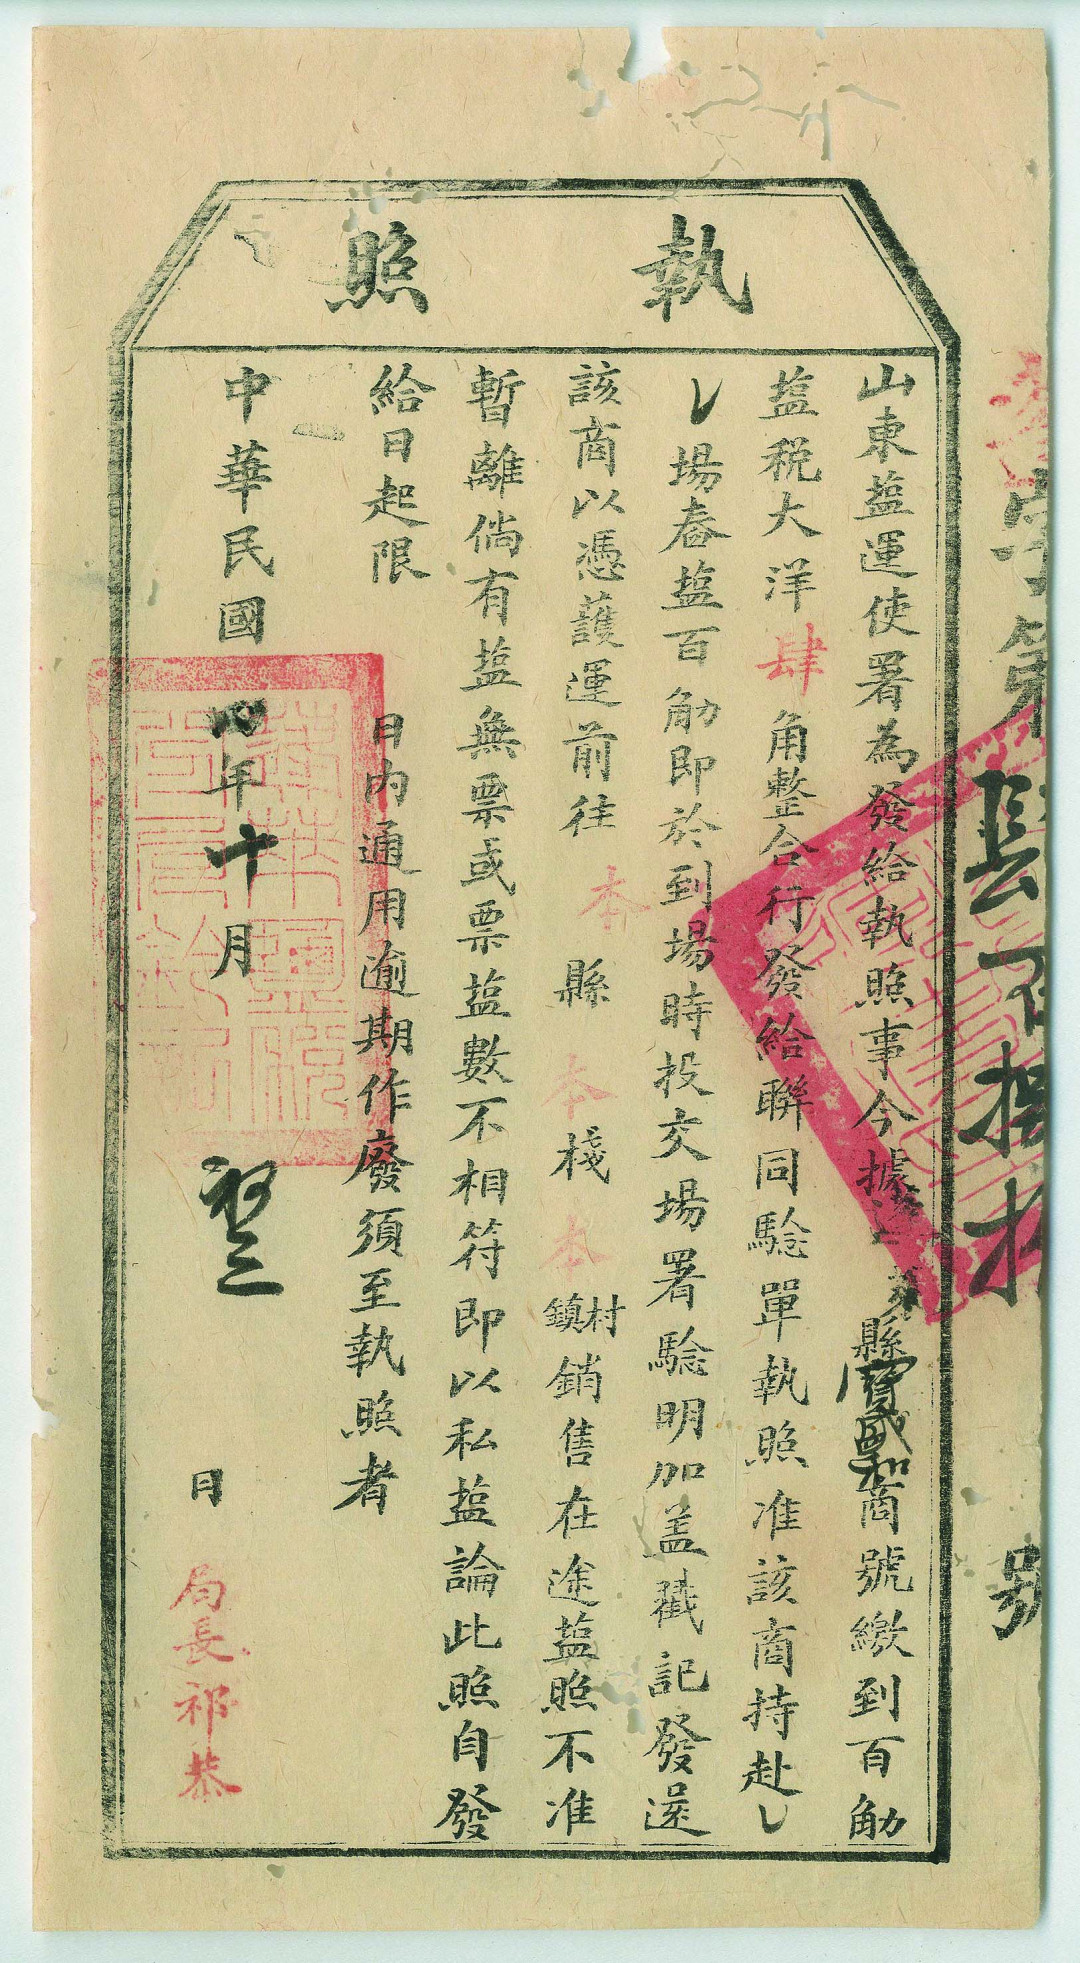 字第
號
執照
山東塩運使署為發給執照事今據 縣寶盛和商號繳到百觔
塩税大洋肆角整合行發給聯同驗單執照准該商持赴
場舂塩百觔即於到場時投交場署驗明加盖戳記發還
該商以憑護運前往本縣本棧本鎮村銷售在途塩照不准
暫離倘有塩無票或票塩數不相符即以私塩論此照自發
給日起限 日內通用逾期作廢須至執照者
中華民國四年十月 日
局長祁恭